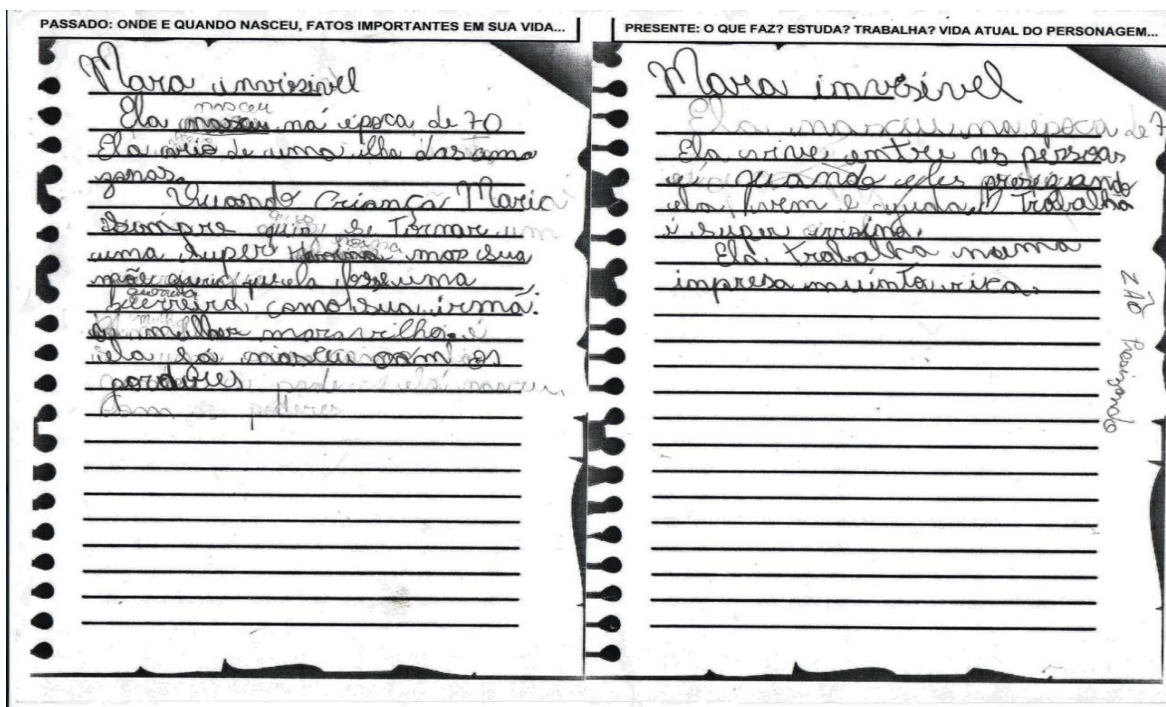 PASSADO: ONDE E QUANDO NASCEU, FATOS IMPORTANTES EM SUA VIDA...
Mara invisivel
nasceu
Ela na época de 70
Ela veio de uma ilha das ama
zonas.
Quando Criança Maria
Sempre quis se Tornar um
uma Super mas sua
mãe queria que ela fosse uma
guerreira como sua irmã.
a mulher maravilha. e
ela já nasceu com os
ela nasceu
com os poderes
PRESENTE: O QUE FAZ? ESTUDA? TRABALHA? VIDA ATUAL DO PERSONAGEM...
Mara imvisivel
Ela nasceu na epoca de 7
Ela vive entre as pessoas
quando eles
ela vem e ajuda. Trabalha
Ela trabalha numa
impresa muinto rica.